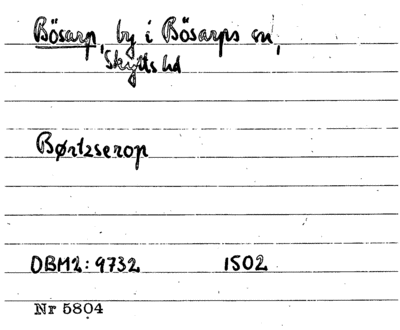 Bösarp, by i Bösarps sn,
Skytts hd
Børtzserop
DBM2: 9732 1502
Nr 5804